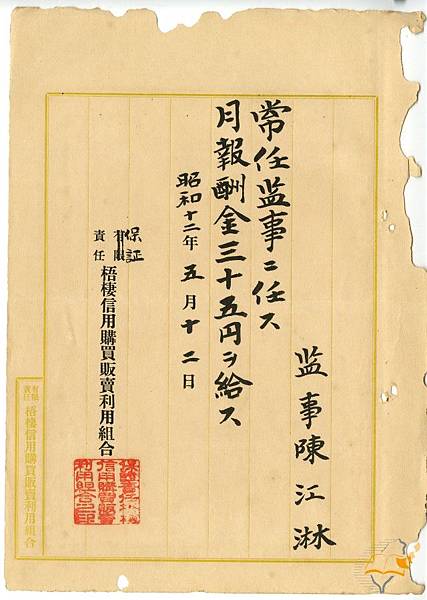 监事陳江淋
常任监事ニ任ス
月報酬金三十五円ヲ給ス
昭和十二年五月十二日
保証
有限責任 梧棲信用購買販賣利用組合
保證責任梧棲
信用購買販賣
利用組合之印
有限責任 梧棲信用購買販賣利用組合